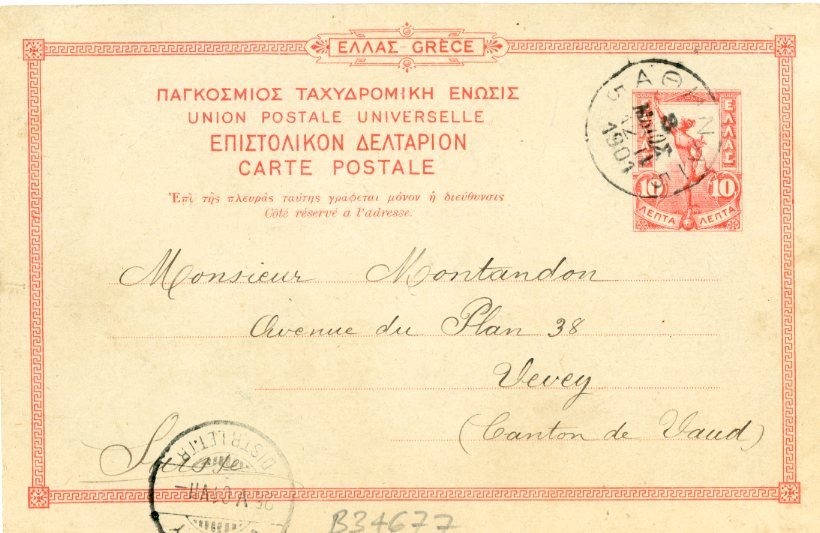 ΕΛΛΑΣ-GRÈCE
ΠΑΓΚΟΣΜΙΟΣ ΤΑΧΥΔΡΟΜΙΚΗ ΕΝΩΣΙΣ
UNION POSTALE UNIVERSELLE
ΕΠΙΣΤΟΛΙΚΟΝ ΔΕΛΤΑΡΙΟΝ
CARTE POSTALE
Ἐπὶ τῆς πλευρᾶς ταύτης γραφεται μόνον ἡ διεύθυνσις
Côté réservé a l'adresse.
ΕΛΛΑΣ
10 10
ΛΕΠΤΑ ΛΕΠΤΑ
1901
Monsieur Montandon
Avenue du Plan 38
Vevey
(Canton de Vaud)
Suisse
DISTR.LET.TR
B34677